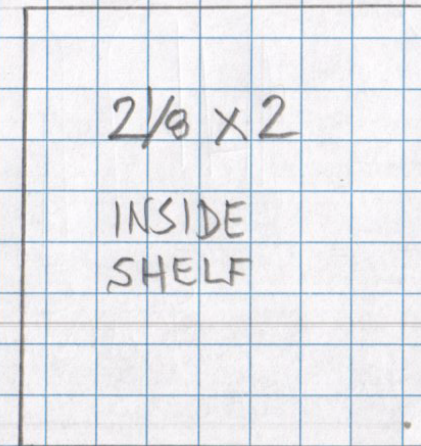 2 1/8 X 2
INSIDE
SHELF